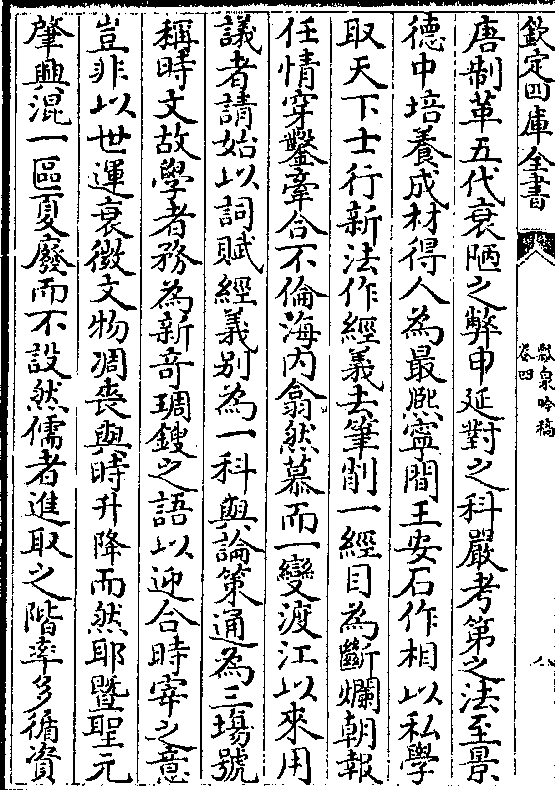 欽定四庫全書
獻泉吟稿
卷四
八
唐制革五代衰陋之弊申延對之科嚴考第之法至景
德中培養成材得人為最熈寧間王安石作相以私學
取天下士行新法作經義去筆削一經目為斷爛朝報
任情穿鑿牽合不倫海内翕然慕而一變渡江以來用
議者請始以詞賦經義别為一科與論策通為三場號
稱時文故學者務為新竒琱鎪之語以迎合時宰之意
豈非以世運衰微文物凋喪與時升降而然耶暨聖元
肇興混一區夏廢而不設然儒者進取之階率多循資